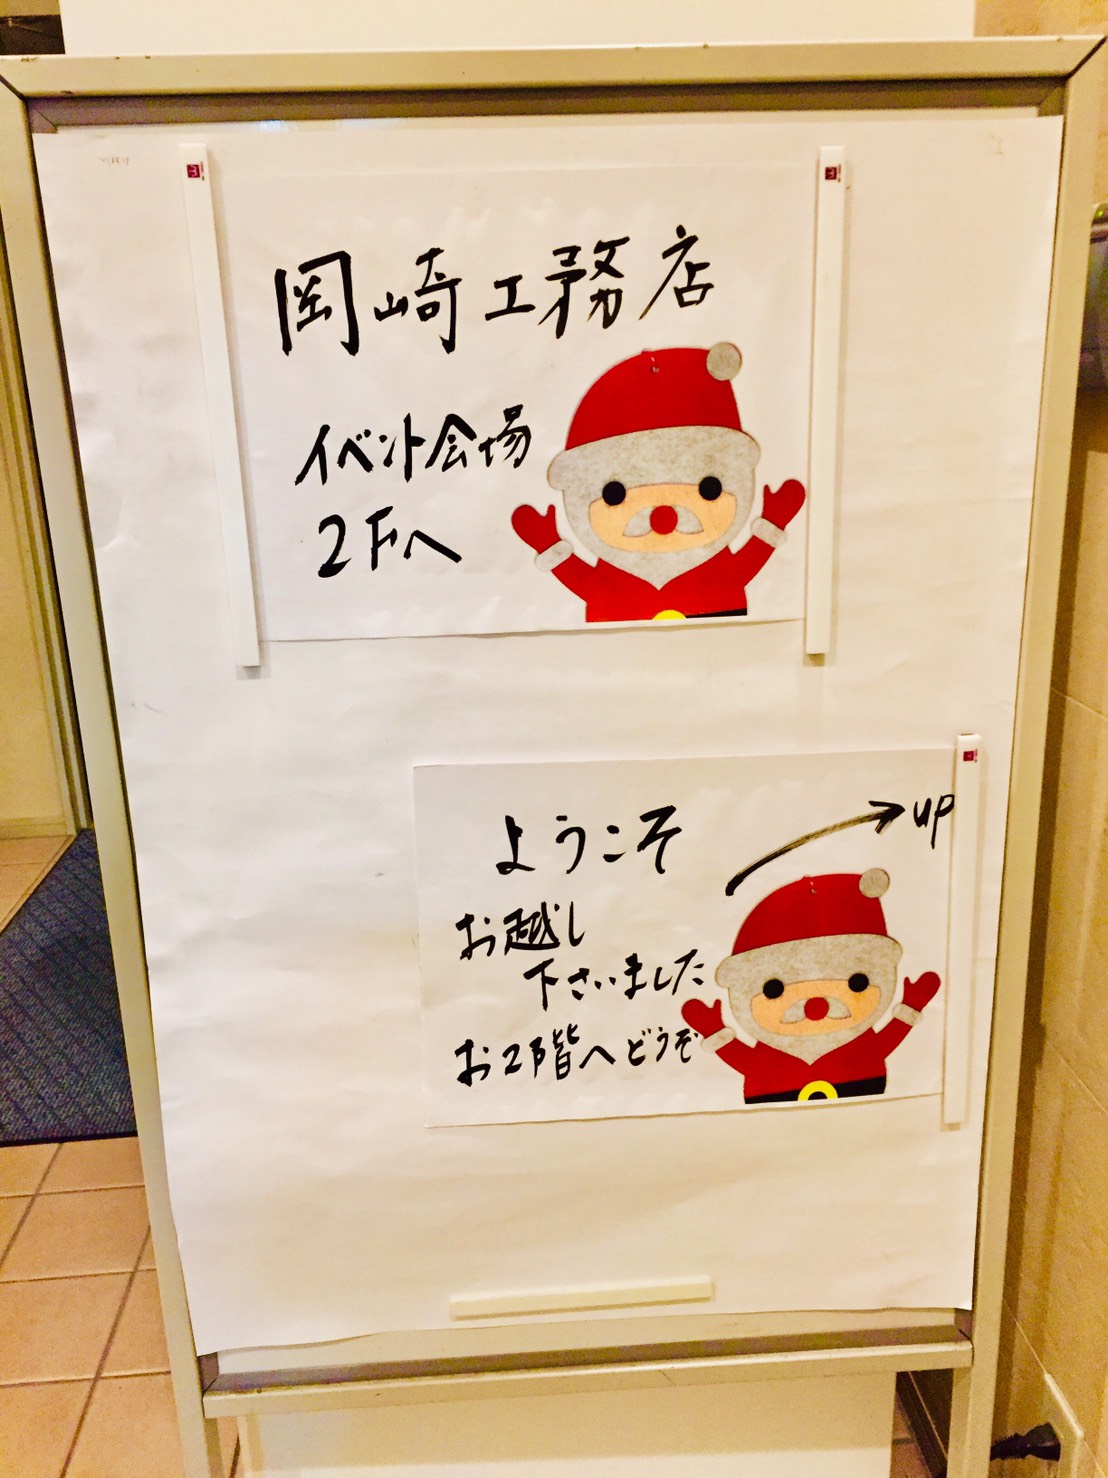 岡崎工務店
イベント会場
2Fへ
ようこそ
up
お越し
下さいました
お2階へどうぞ